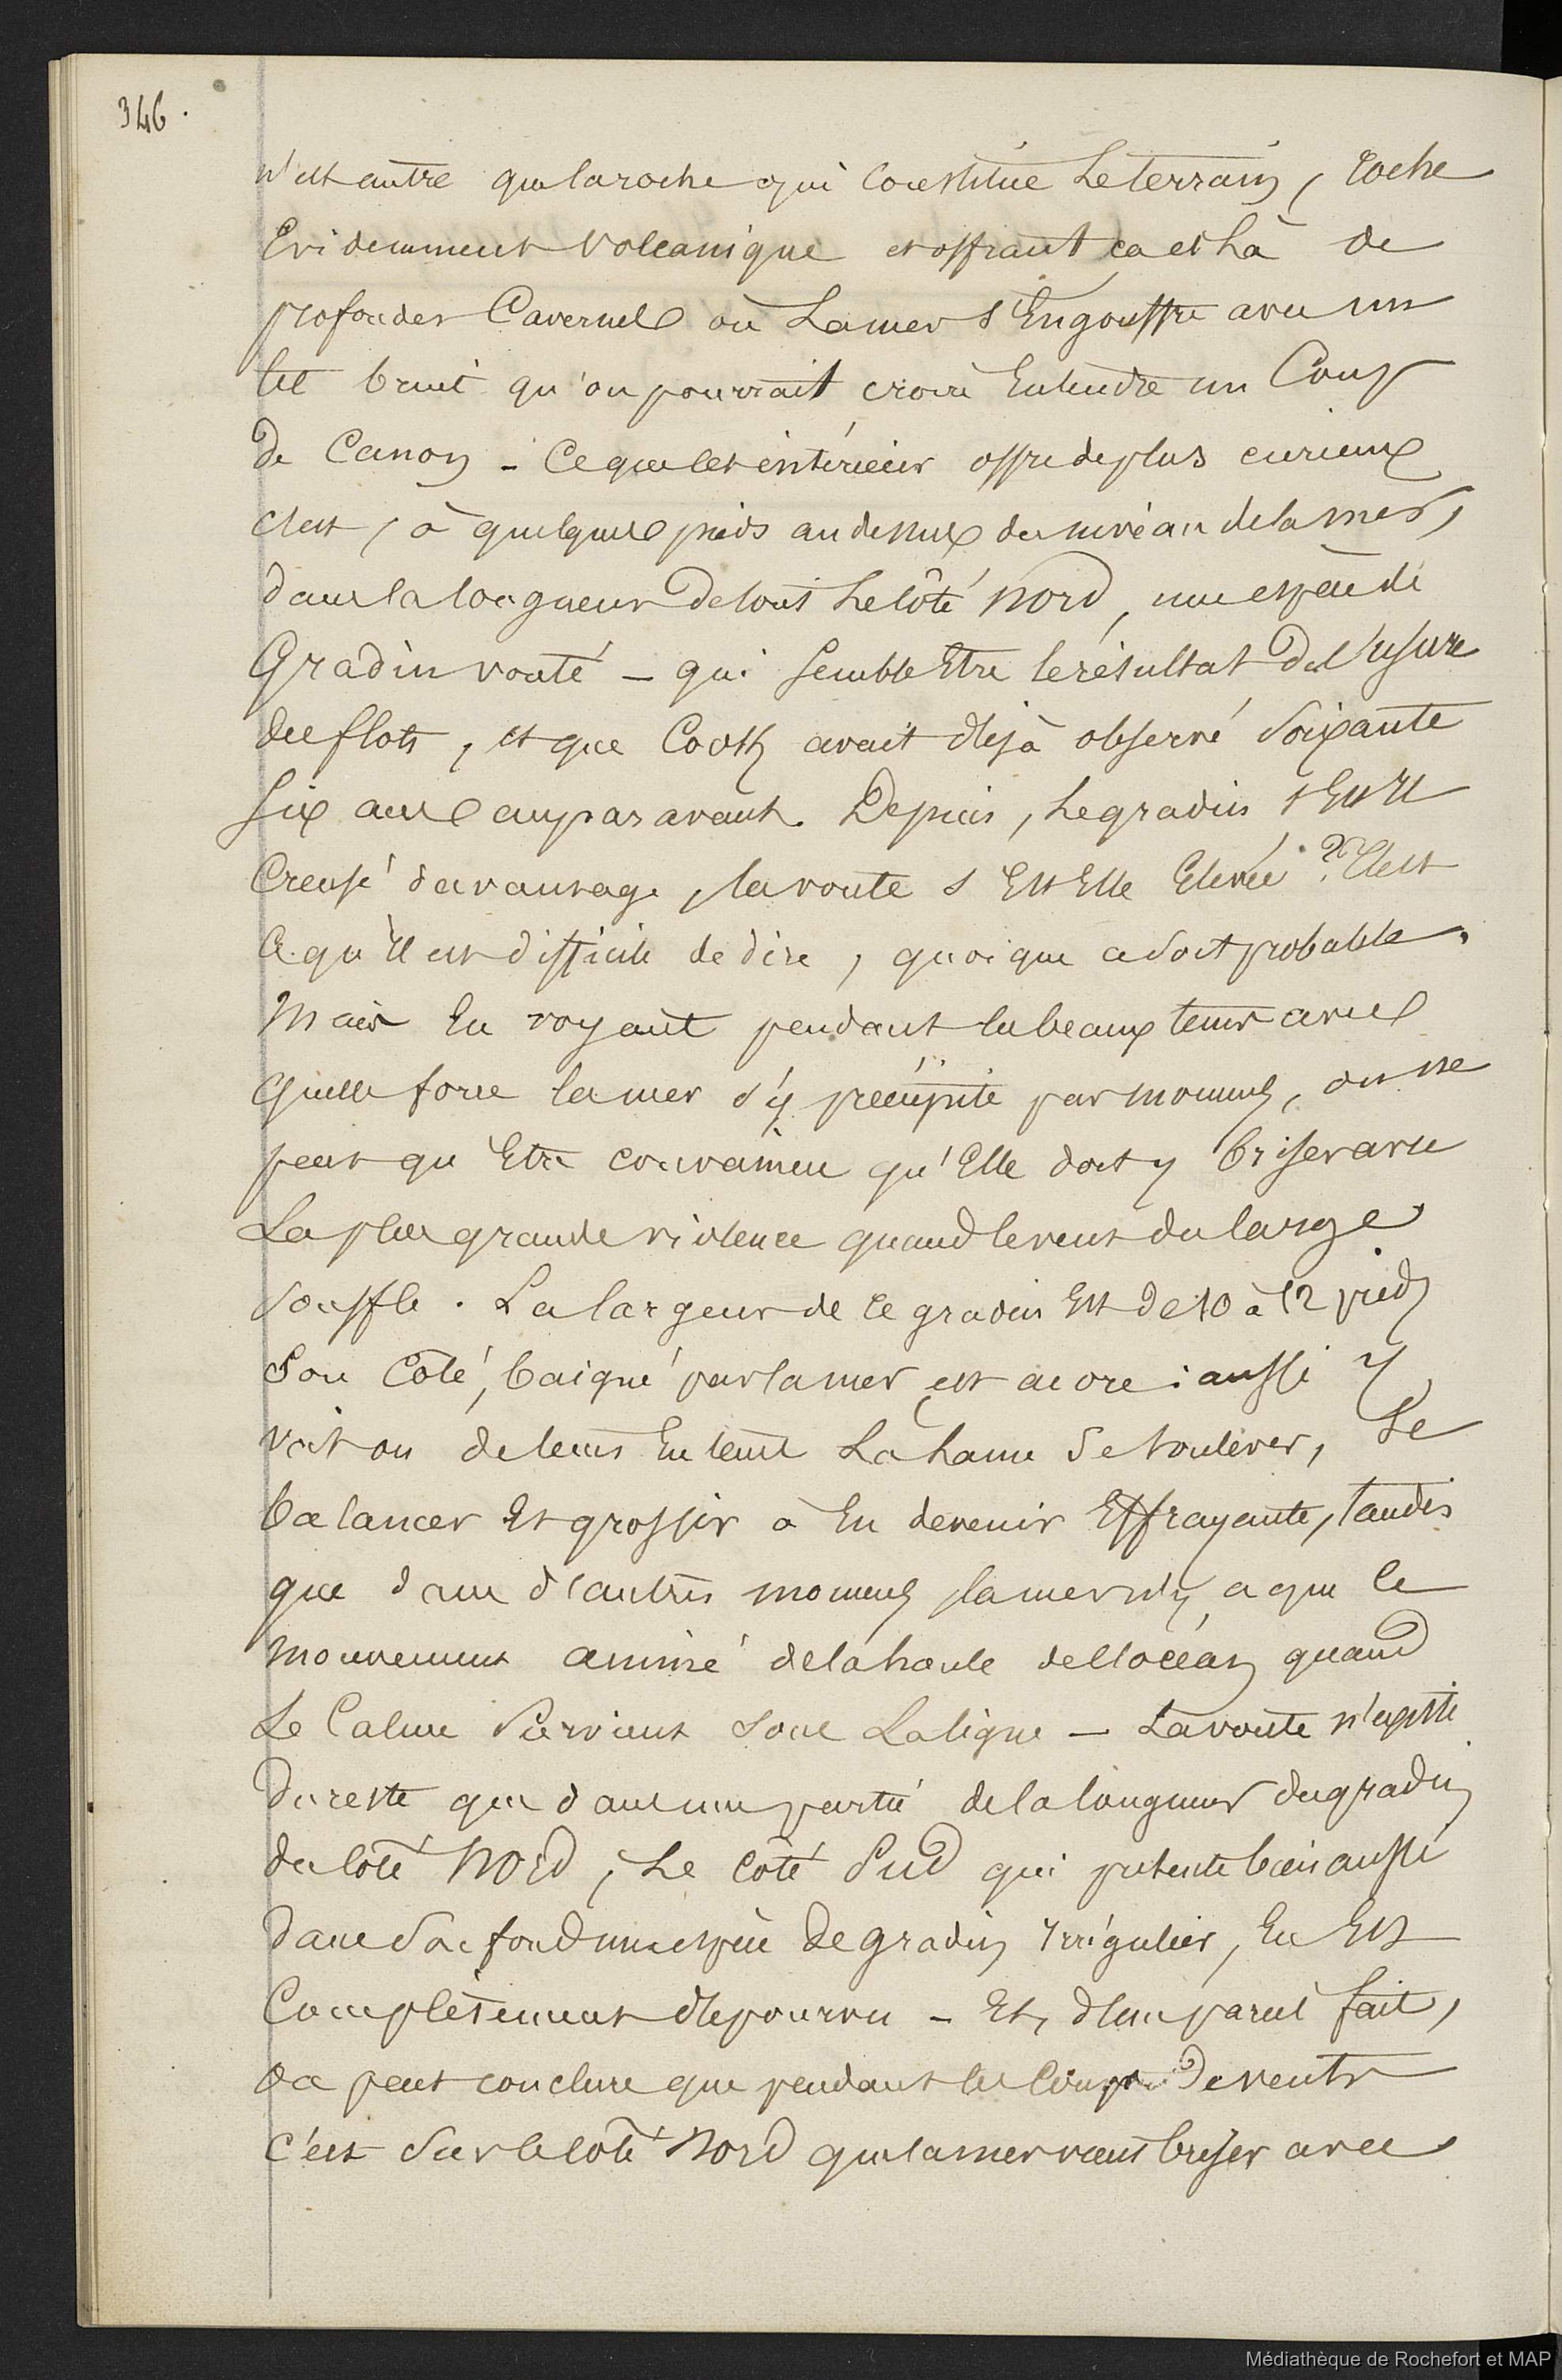 346.
n'est autre que la roche qui constitue le terrain, roche
Evidemment volcanique et offrant ça et là de
profondes Cavernes où La mer s'Engouffre avec un
tel bruit qu'on pourrait croire Entendre un Coup
de Canon - Ce que cet intérieur offre de plus curieux
c'est, à quelques pieds au dessus du niveau de la mer,
dans la longueur de tout Le côté Nord, une espèce de
Gradin vouté - qui semble Etre le résultat de l'usure
des flots, et que Cook avait déjà observé Soixante
six ans auparavant. Depuis, Le gradin s'Est il
Creusé davantage, la voute s'Est Elle Elevée ? C'est
ce qu'il est difficile de dire, quoique ce soit probable.
Mais En voyant pendant les beaux tems avec
quelle force la mer s'y précipite par momens, on ne
peut qu'Etre convaincu qu'Elle doit y briser avec
La plus grande violence quand le vent du large
souffle. La largeur de ce gradin Est de 10 à 12 pieds
Son Côté, baigné par la mer est acore : aussi y
voit on de tems En tems La Lame Se soulever, Se
balancer Et grossir à En devenir Effrayante, tandis
que dans d'autres momens la mer n'y a que le
mouvement animé de la houle de l'océan quand
Le Calme Survient Sous La ligne - La voute n'existe
du reste que dans une partie de la longueur du gradin
du côté Nord ; Le côté Sud qui présente bien aussi
dans Son fond une espèce de gradin Irrégulier, En Est
Complètement dépourvu - Et, d'un pareil fait,
on peut conclure que pendant les Coups de vents
c'est Sur le côté Nord que la mer vient briser avec
Médiathèque de Rochefort et MAP